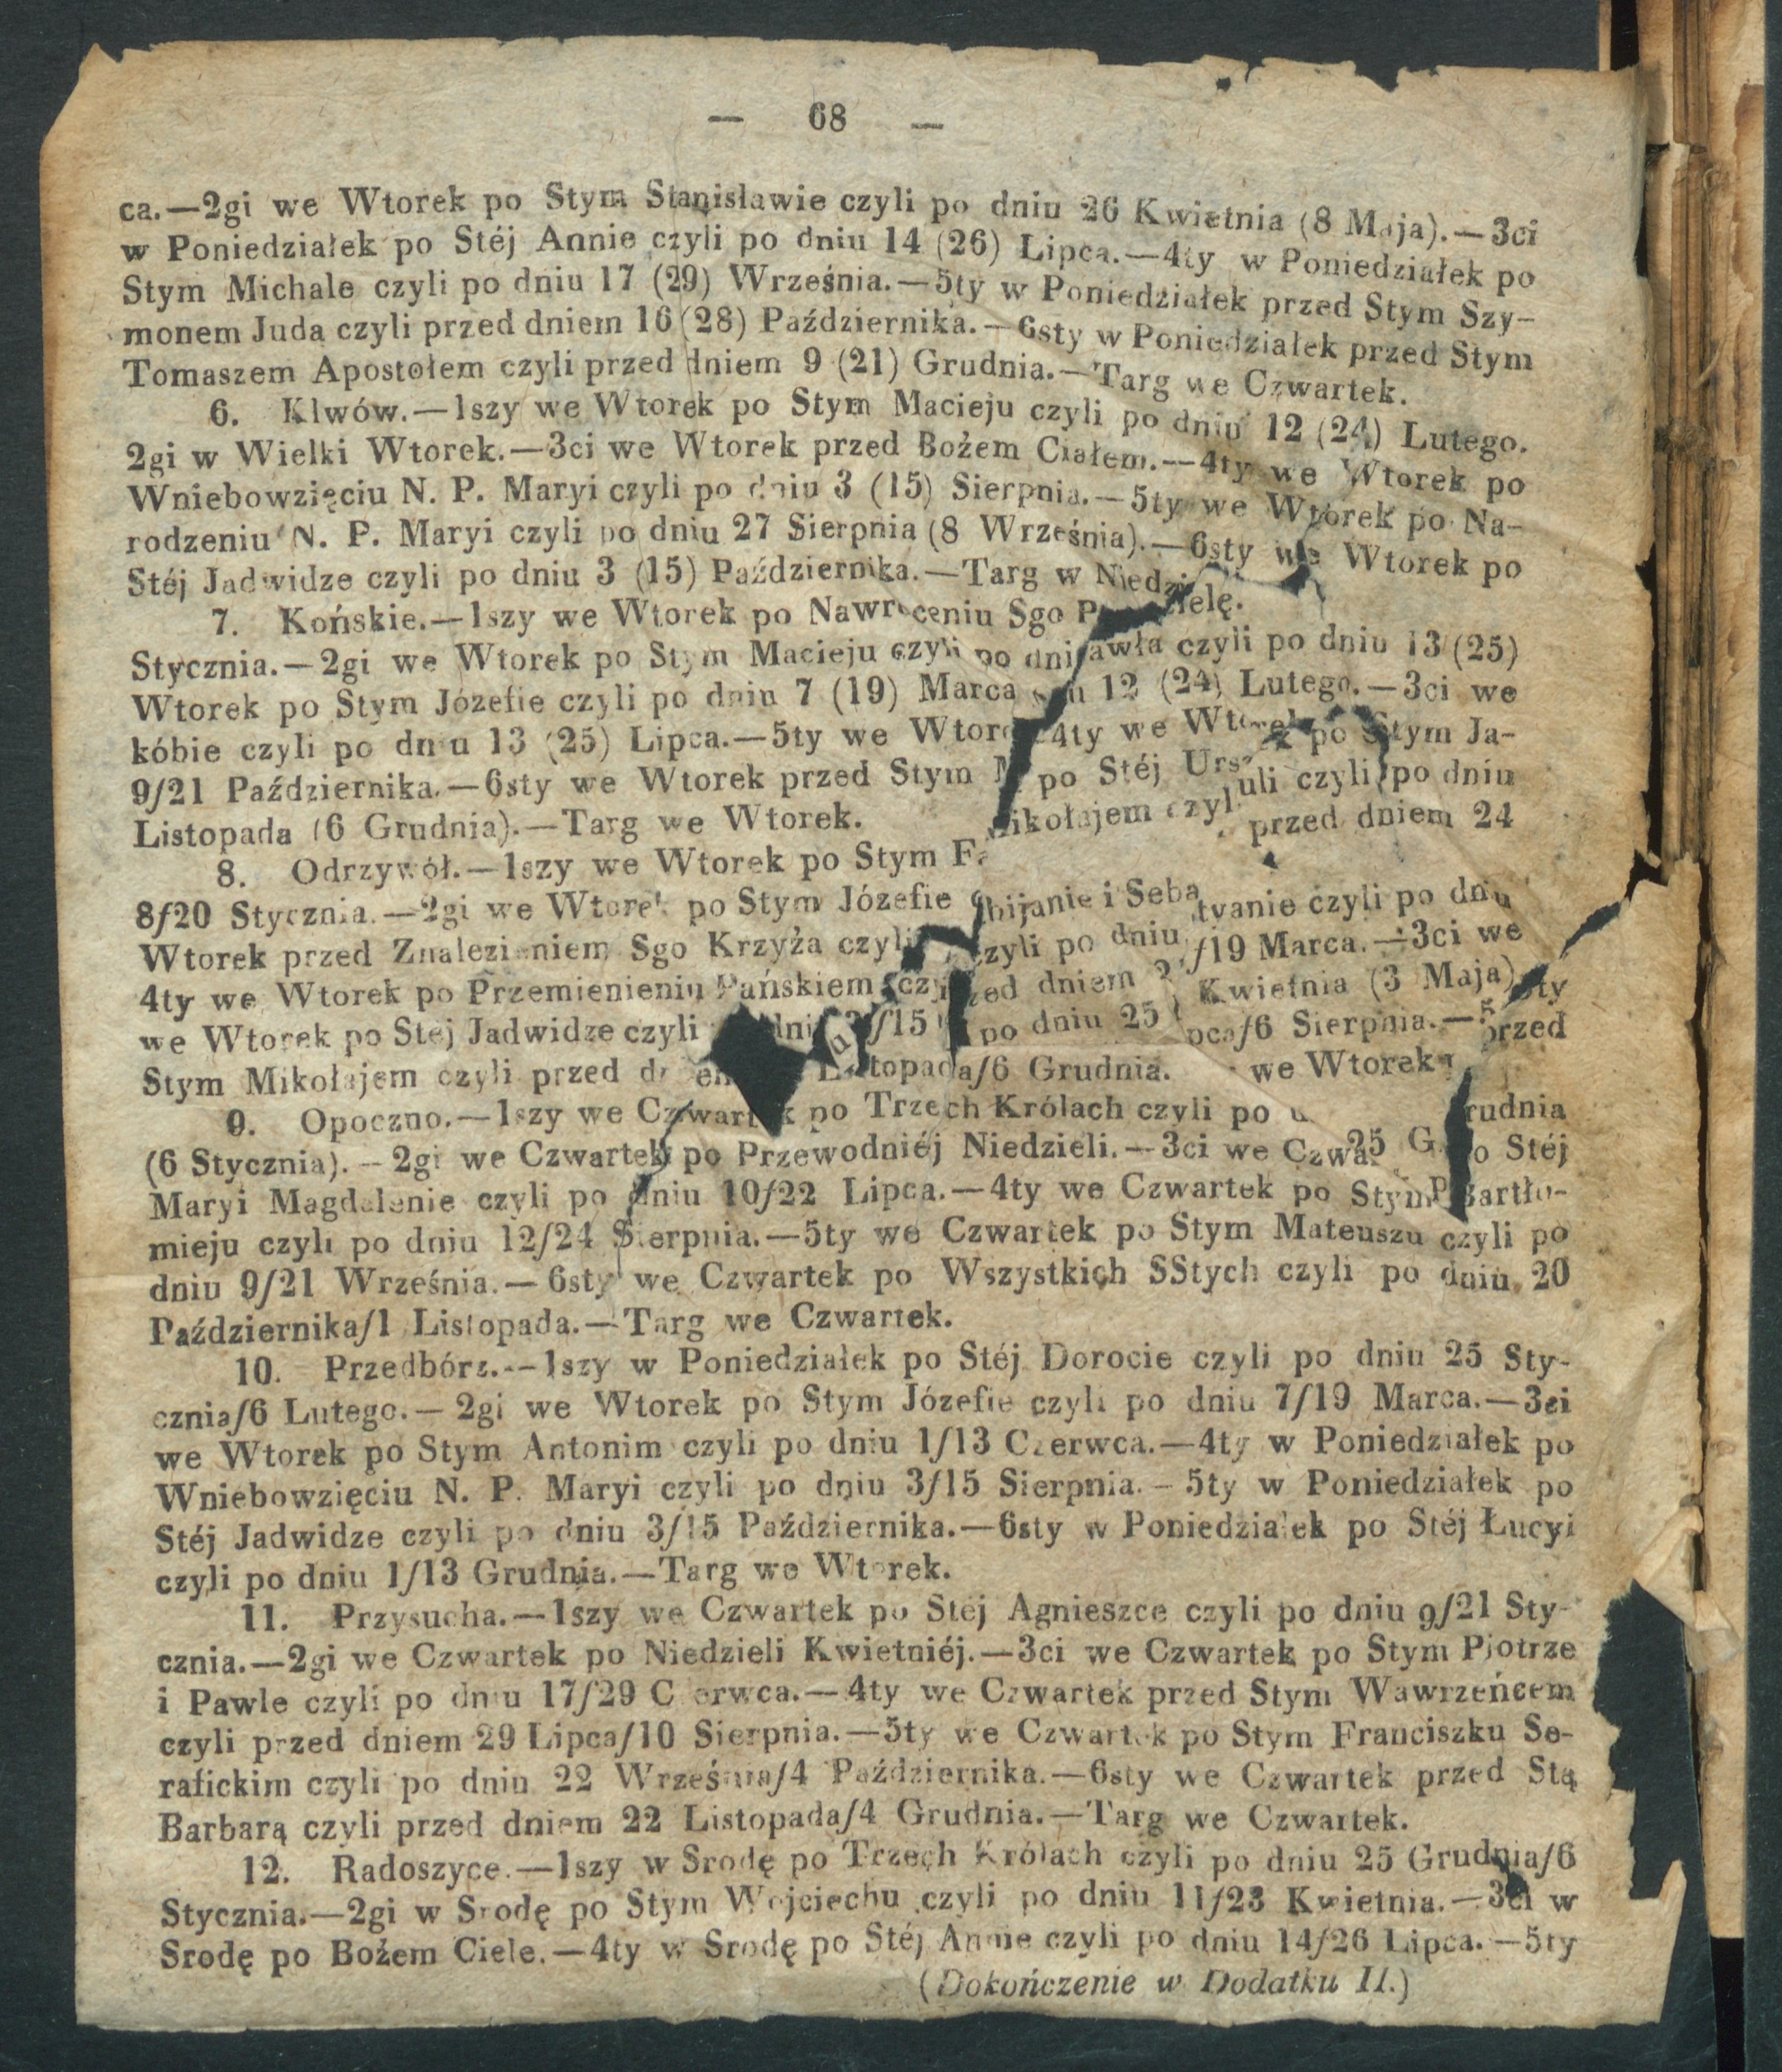 — 68 —
ca.—2gi we Wtorek po Stym Stanisławie czyli po dniu 26 Kwietnia (8 Maja).—3ci
w Poniedziałek po Stéj Annie czyli po dniu 14 (26) Lipca.—4ty w Poniedziałek po
Stym Michale czyli po dniu 17 (29) Września.—5ty w Poniedziałek przed Stym Szy-
monem Judą czyli przed dniem 16 (28) Października.—6sty w Poniedziałek przed Stym
Tomaszem Apostołem czyli przed dniem 9 (21) Grudnia.—Targ we Czwartek.
6. Klwów.—1szy we Wtorek po Stym Macieju czyli po dniu 12 (24) Lutego.
2gi w Wielki Wtorek.—3ci we Wtorek przed Bożem Ciałem.—4ty we Wtorek po
Wniebowzięciu N. P. Maryi czyli po dniu 3 (15) Sierpnia.—5ty we Wtorek po Na-
rodzeniu N. P. Maryi czyli po dniu 27 Sierpnia (8 Września).—6sty we Wtorek po
Stéj Jadwidze czyli po dniu 3 (15) Października.—Targ w Niedzielę.
7. Końskie.—1szy we Wtorek po Nawróceniu Sgo Pawła czyli po dniu 13 (25)
Stycznia.—2gi we Wtorek po Stym Macieju czyli po dniu 12 (24) Lutego.—3ci we
Wtorek po Stym Józefie czyli po dniu 7 (19) Marca 4ty we Wtorek po Stym Ja-
kóbie czyli po dniu 13 (25) Lipca.—5ty we Wtorek po Stéj Urszuli czyli po dniu
9/21 Października.—6sty we Wtorek przed Stym Mikołajem czyli przed dniem 24
Listopada (6 Grudnia).—Targ we Wtorek.
8. Odrzywół.—1szy we Wtorek po Stym Fabijanie i Sebastyanie czyli po dniu
8/20 Stycznia.—2gi we Wtorek po Stym Józefie czyli po dniu /19 Marca.—3ci we
Wtorek przed Znalezieniem Sgo Krzyża czyli przed dniem 2 Kwietnia (3 Maja)
4ty we Wtorek po Przemienieniu Pańskiem czyli po dniu 25 Lipca/6 Sierpnia.—5ty
we Wtorek po Stej Jadwidze czyli dniu 3/15 we Wtorek przed
Stym Mikołajem czyli przed dniem Listopada/6 Grudnia.
9. Opoczno.—1szy we Czwartek po Trzech Królach czyli po 25 Grudnia
(6 Stycznia).—2gi we Czwartek po Przewodniéj Niedzieli.—3ci we Czwartek po Stéj
Maryi Magdalenie czyli po dniu 10/22 Lipca.—4ty we Czwartek po Stym Bartło-
mieju czyli po dniu 12/24 Sierpnia.—5ty we Czwartek po Stym Mateuszu czyli po
dniu 9/21 Września.—6sty we Czwartek po Wszystkich SStych czyli po dniu 20
Października/1 Listopada.—Targ we Czwartek.
10. Przedbórz.—1szy w Poniedziałek po Stéj Dorocie czyli po dniu 25 Sty-
cznia/6 Lutego.—2gi we Wtorek po Stym Józefie czyli po dniu 7/19 Marca.—3ci
we Wtorek po Stym Antonim czyli po dniu 1/13 Czerwca.—4ty w Poniedziałek po
Wniebowzięciu N. P. Maryi czyli po dniu 3/15 Sierpnia.—5ty w Poniedziałek po
Stéj Jadwidze czyli po dniu 3/15 Października.—6sty w Poniedziałek po Stéj Łucyi
czyli po dniu 1/13 Grudnia.—Targ we Wtorek.
11. Przysucha.—1szy we Czwartek po Stéj Agnieszce czyli po dniu 9/21 Sty-
cznia.—2gi we Czwartek po Niedzieli Kwietniéj.—3ci we Czwartek po Stym Piotrze
i Pawle czyli po dniu 17/29 Czerwca.—4ty we Czwartek przed Stym Wawrzeńcem
czyli przed dniem 29 Lipca/10 Sierpnia.—5ty we Czwartek po Stym Franciszku Se-
rafickim czyli po dniu 22 Września/4 Października.—6sty we Czwartek przed Stą
Barbarą czyli przed dniem 22 Listopada/4 Grudnia.—Targ we Czwartek.
12. Radoszyce.—1szy w Srodę po Trzech Królach czyli po dniu 25 Grudnia/6
Stycznia.—2gi w Srodę po Stym Wojciechu czyli po dniu 11/23 Kwietnia.—3ci w
Srodę po Bożem Ciele.—4ty w Srodę po Stéj Annie czyli po dniu 14/26 Lipca.—5ty
(Dokończenie w Dodatku II.)